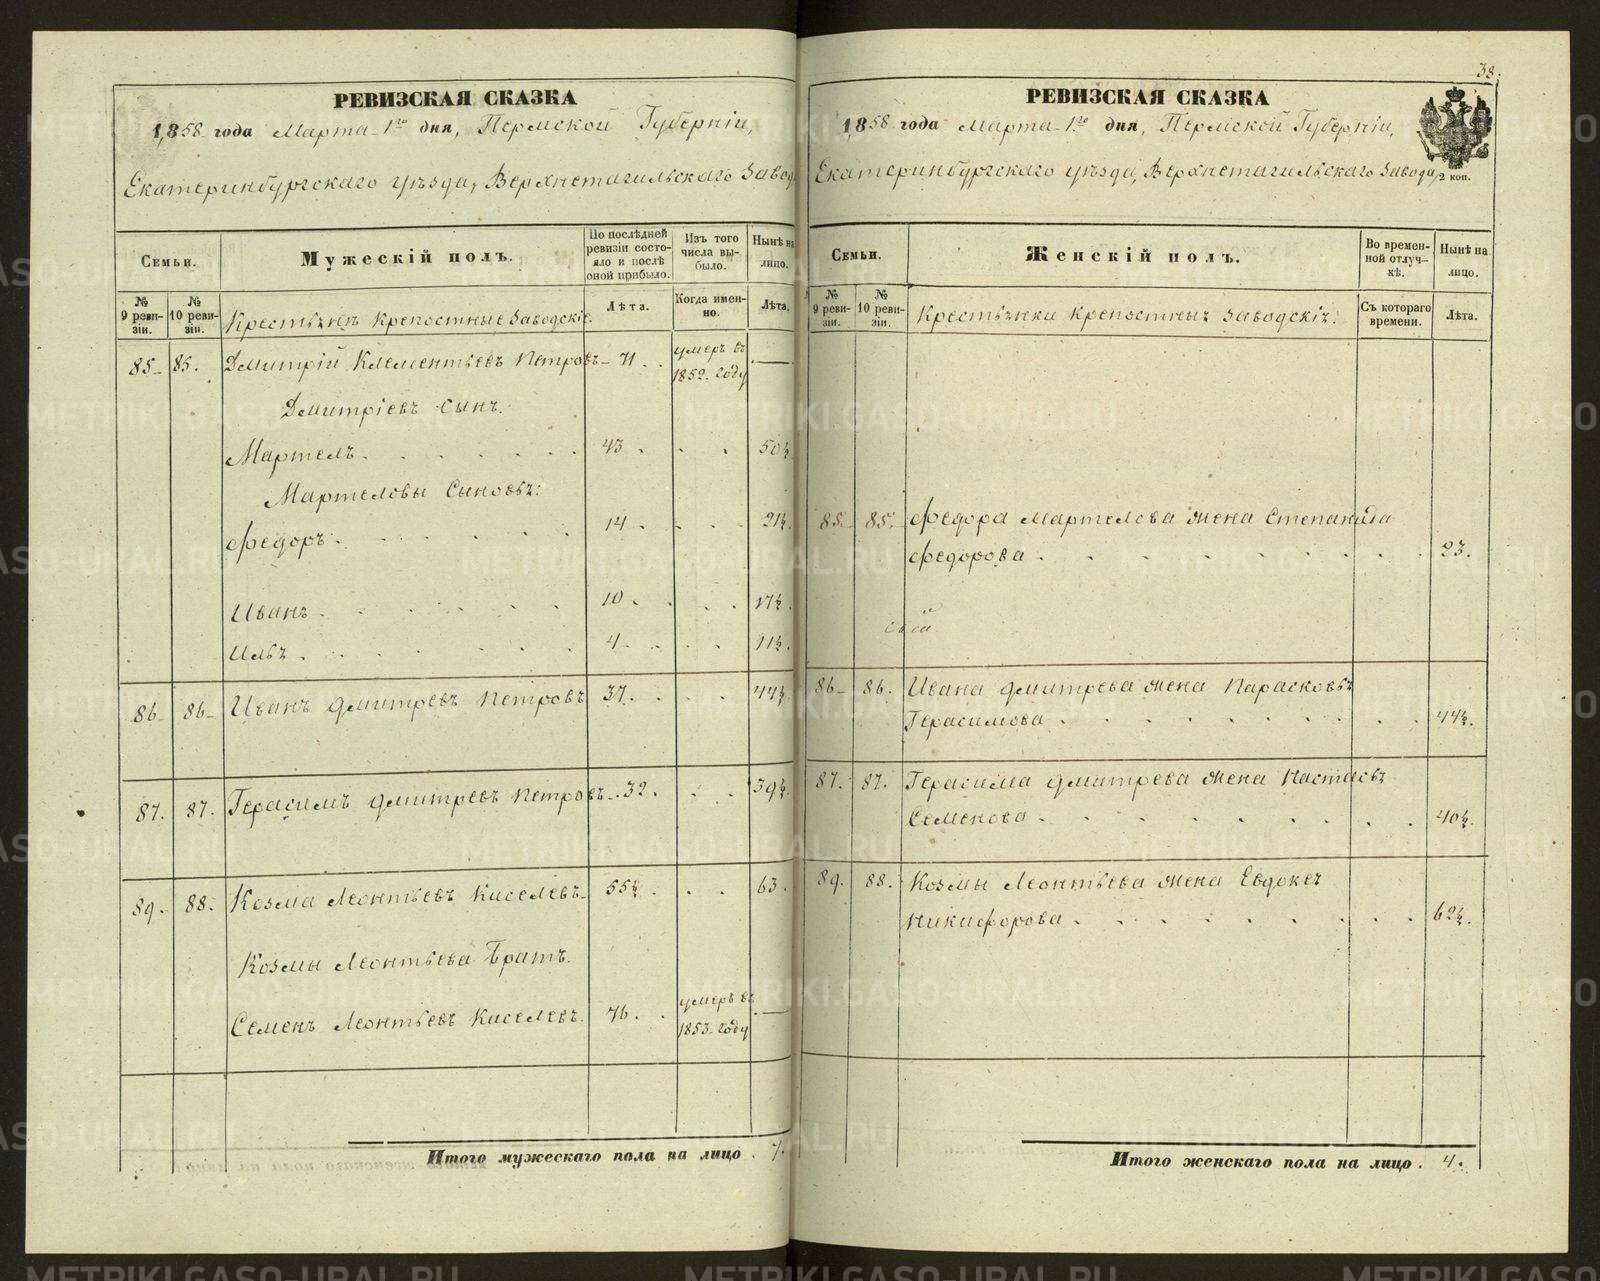 РЕВИЗСКАЯ СКАЗКА
1858 года Марта 1го дня, Пермской Губерніи,
Екатеринбургскаго уѣзда, Верхнетагильскаго Завод
Семьи.
Мужескій полъ.
По послѣдней ревизіи состояло и послѣ оной прибыло.
Изъ того числа выбыло.
Нынѣ на лицо.
№ 9 ревизіи.
№ 10 ревизіи.
Крестьянъ Крепостные Заводскіе.
Лѣта.
Когда именно.
Лѣта.
85 85. Дмитрій Клементьевъ Петровъ 71 . умеръ въ 1852 году —
Дмитріевъ сынъ.
Мартелъ . 43 . 50½
Мартеловы Сыновья:
Федоръ . 14 . 21½.
Иванъ . 10 . 17½.
Илья . 4 . 11½.
86 86 Иванъ Дмитревъ Петровъ 37. 44½
87. 87. Герасимъ Дмитревъ Петровъ 32. 39½.
89. 88. Козма Леонтьевъ Киселевъ 55½. 63.
Козмы Леонтьева Братъ.
Семенъ Леонтьевъ Киселевъ. 76. умеръ въ 1853 году —
Итого мужескаго пола на лицо . 7.
38.
РЕВИЗСКАЯ СКАЗКА
1858 года Марта 1го дня, Пермской Губерніи,
Екатеринбургскаго уѣзда, Верхнетагильскаго Завода,
2 коп.
Семьи.
Женскій полъ.
Во временной отлучкѣ.
Нынѣ на лицо.
№ 9 ревизіи.
№ 10 ревизіи.
Крестьянки Крепостныя Заводскія.
Съ котораго времени.
Лѣта.
85 85. Федора Мартелова жена Степанида
Федорова . 23.
86 86. Ивана Дмитрева жена Парасковья
Герасимова . 44½.
87. 87. Герасима Дмитрева жена Настасья
Семенова . 40½.
89. 88. Козмы Леонтьева жена Евдокея
Никифорова . 62½.
Итого женскаго пола на лицо . 4.
METRIKI.GASO-URAL.RU